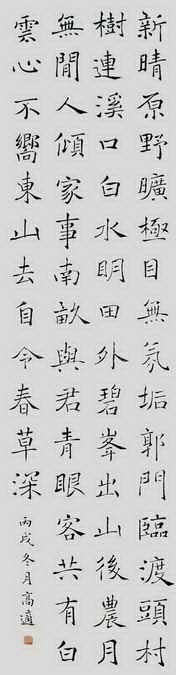 新晴原野曠極目無氛垢郭門臨渡頭村
樹連溪口白水明田外碧峯出山後農月
無閒人傾家事南畝與君青眼客共有白
雲心不嚮東山去自令春草深
丙戌冬月高適